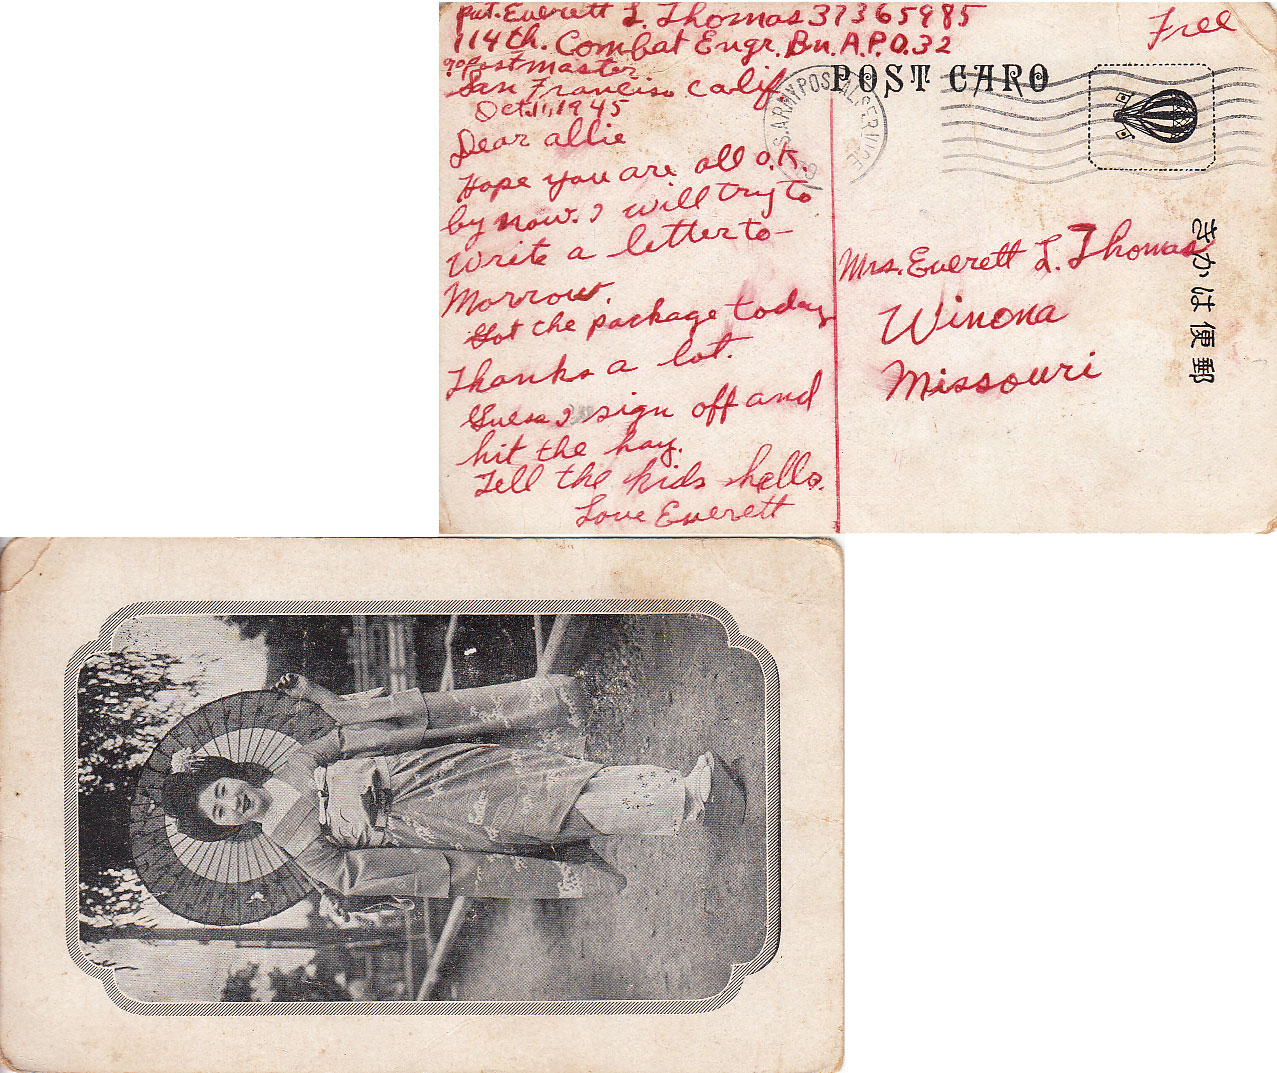 Pvt. Everett L. Thomas 37365985
114th. Combat Engr. Bn. A.P.O. 32
℅ Postmaster
San Francisco Calif
Oct. 11, 1945
Dear allie
Hope you are all O.K.
by now. I will try to
write a letter to-
Morrow.
Got the package today
Thanks a lot.
Guess I sign off and
hit the hay.
Tell the kids hello.
Love Everett
Free
POST CARD
U.S. ARMY POSTAL SERVICE
Mrs. Everett L. Thomas
Winona
Missouri
きかは便郵